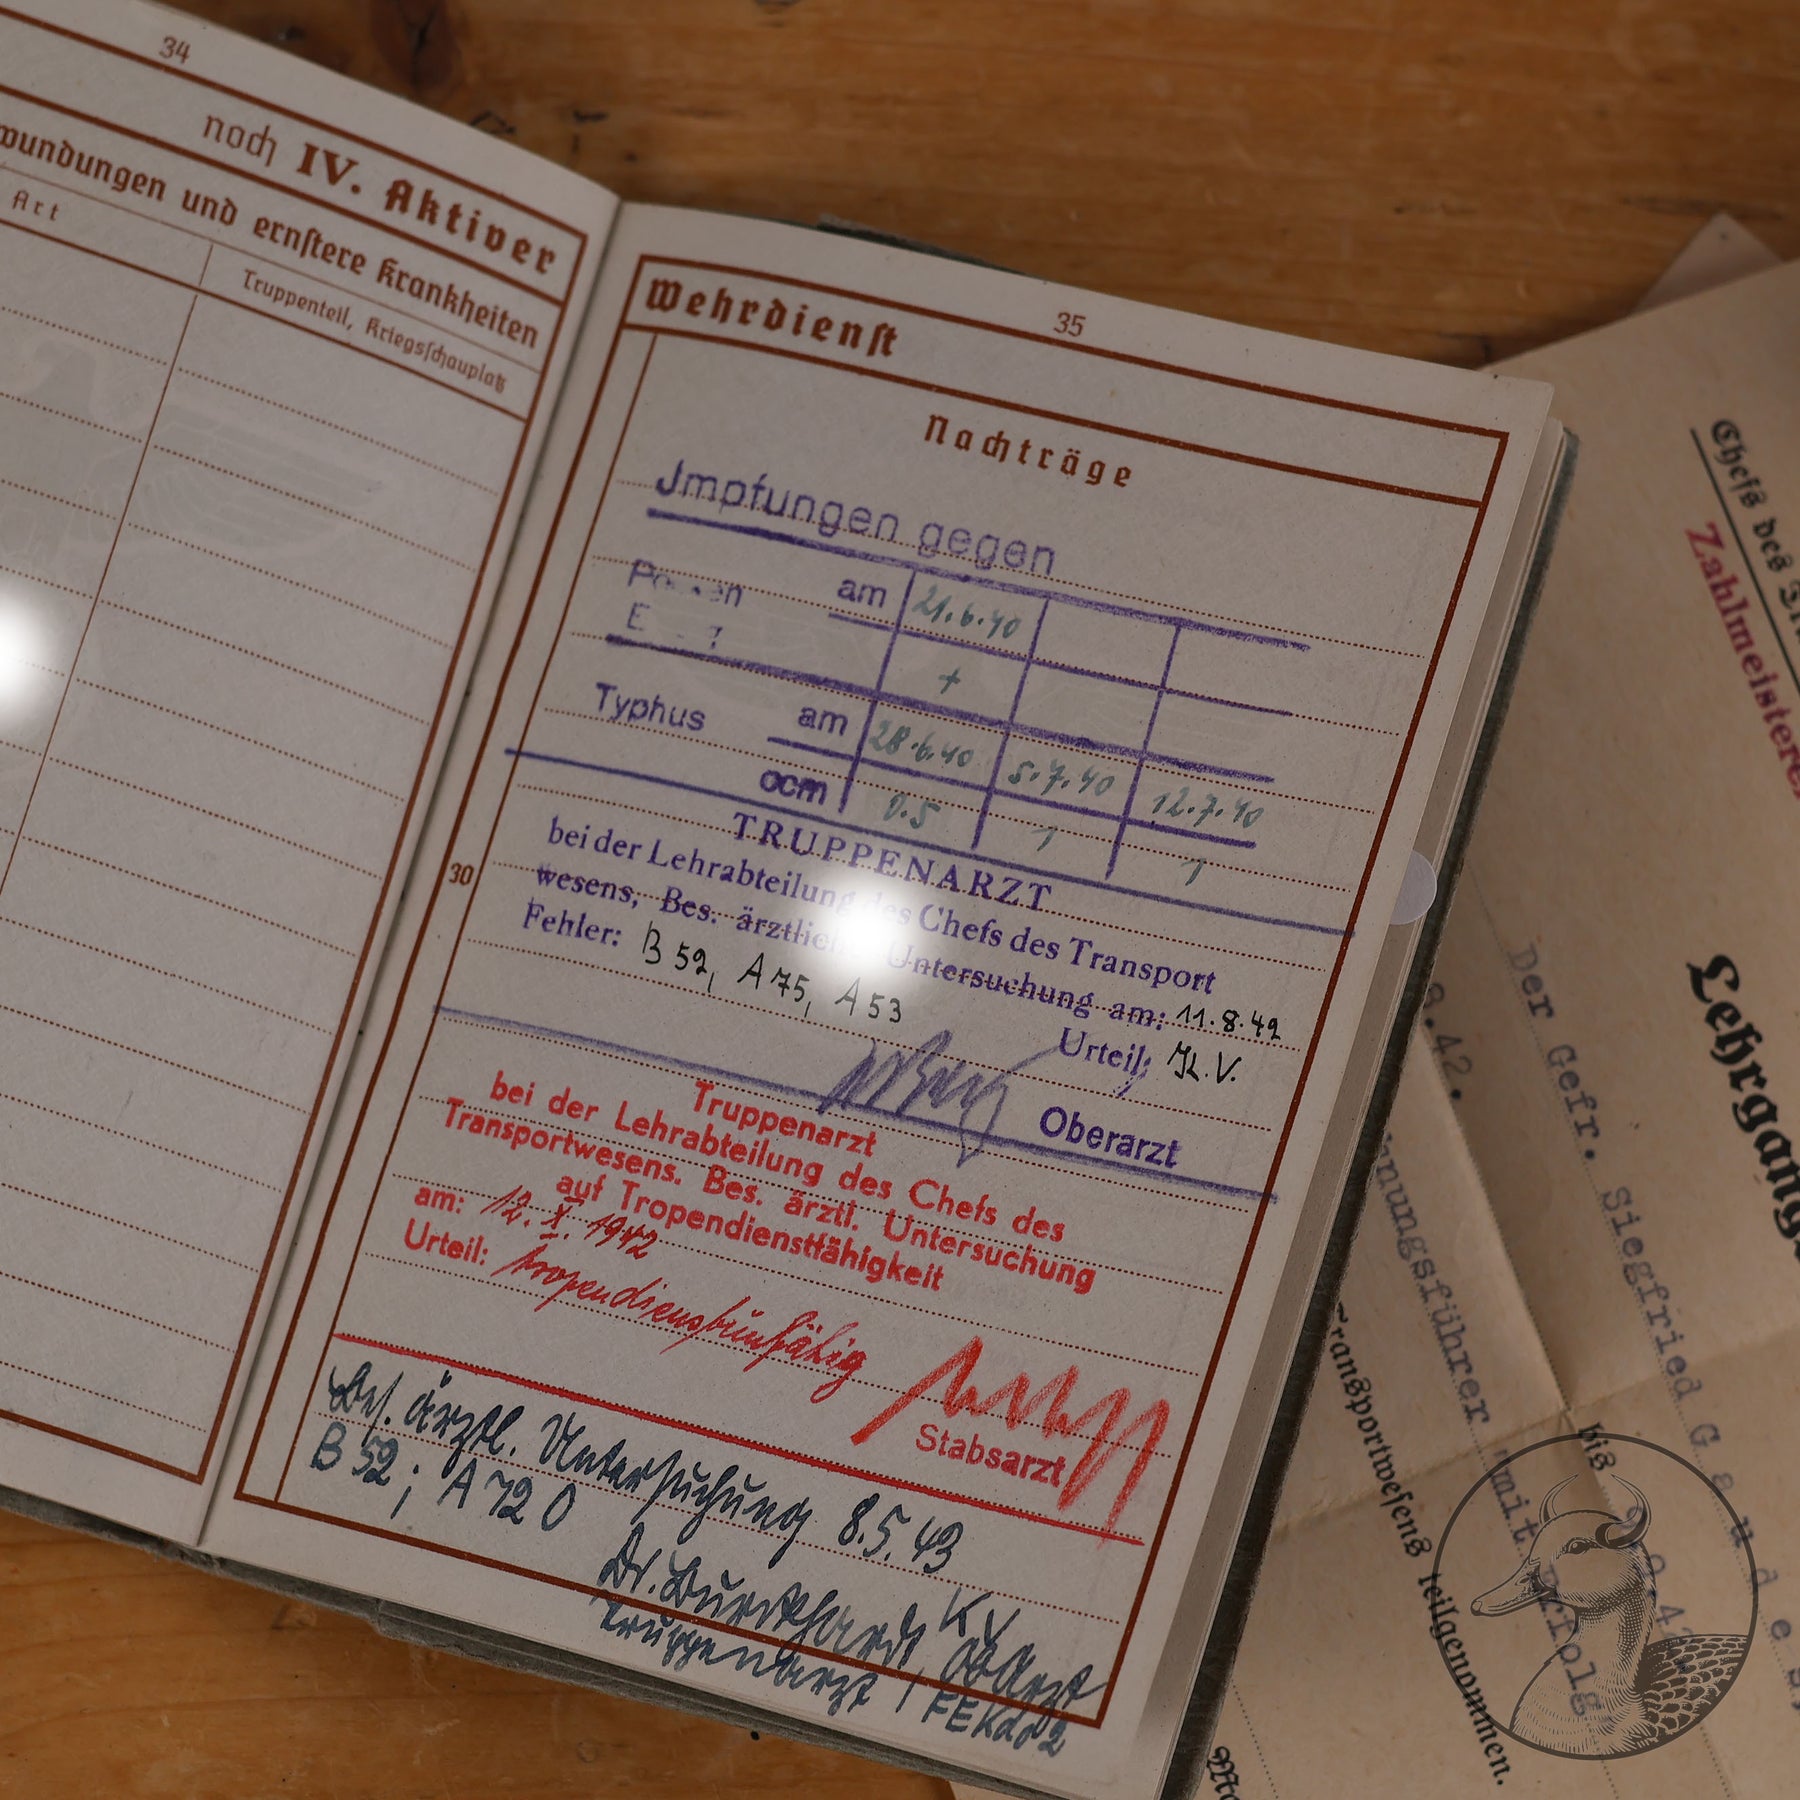 34
noch IV. Aktiver
wundungen und ernstere Krankheiten
Art
Truppenteil, Kriegsschauplatz
35
Wehrdienst
Nachträge
Jmpfungen gegen
am 21.6.40
+
Typhus am 28.6.40 5.7.40 12.7.40
ccm 0.5 1 1
TRUPPENARZT
bei der Lehrabteilung des Chefs des Transport
wesens, Bes. ärztliche Untersuchung am: 11.8.42
Fehler: B 52, A 75, A 53
Urteil: K.V.
Oberarzt
30
Truppenarzt
bei der Lehrabteilung des Chefs des
Transportwesens. Bes. ärztl. Untersuchung
auf Tropendienstfähigkeit
am: 12. X. 1942
Urteil: tropendienstunfähig
Stabsarzt
Bes. ärztl. Untersuchung 8.5.43
B 52; A 72 O
KV
Dr. Burckhardt, OBArzt
Truppenarzt, FEKdo 2
Chefs des
Zahlmeisterei
Lehrgang
Der Gefr. Siegfried G a u d e s,
8.42. bis
nungsführer mit Erfolg
Transportwesens teilgenommen.